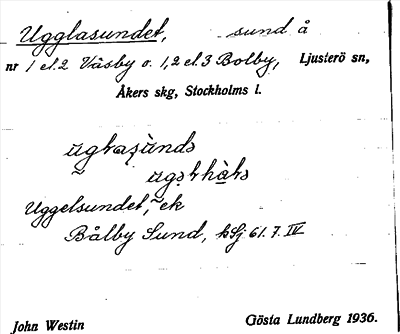 Ugglasundet, sund å
nr 1 el. 2 Väsby o. 1, 2 el. 3 Bolby, Ljusterö sn,
Åkers skg, Stockholms l.
Uggelsundet, ek
Bålby Sund, 61. 7. IV
John Westin Gösta Lundberg 1936.